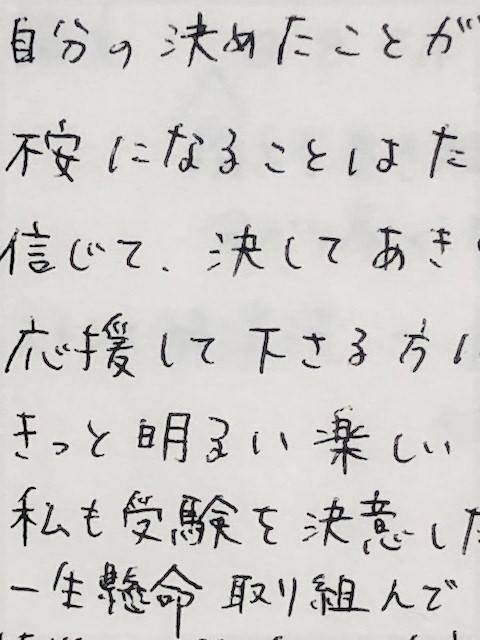 自分の決めたことが
不安になることはた
信じて、決してあき
応援して下さる方
きっと明るい楽しい
私も受験を決意した
一生懸命取り組んで